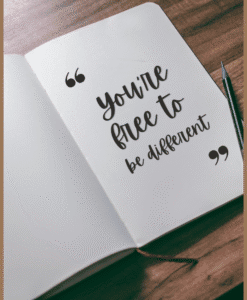 “
You're
free to
be different
”